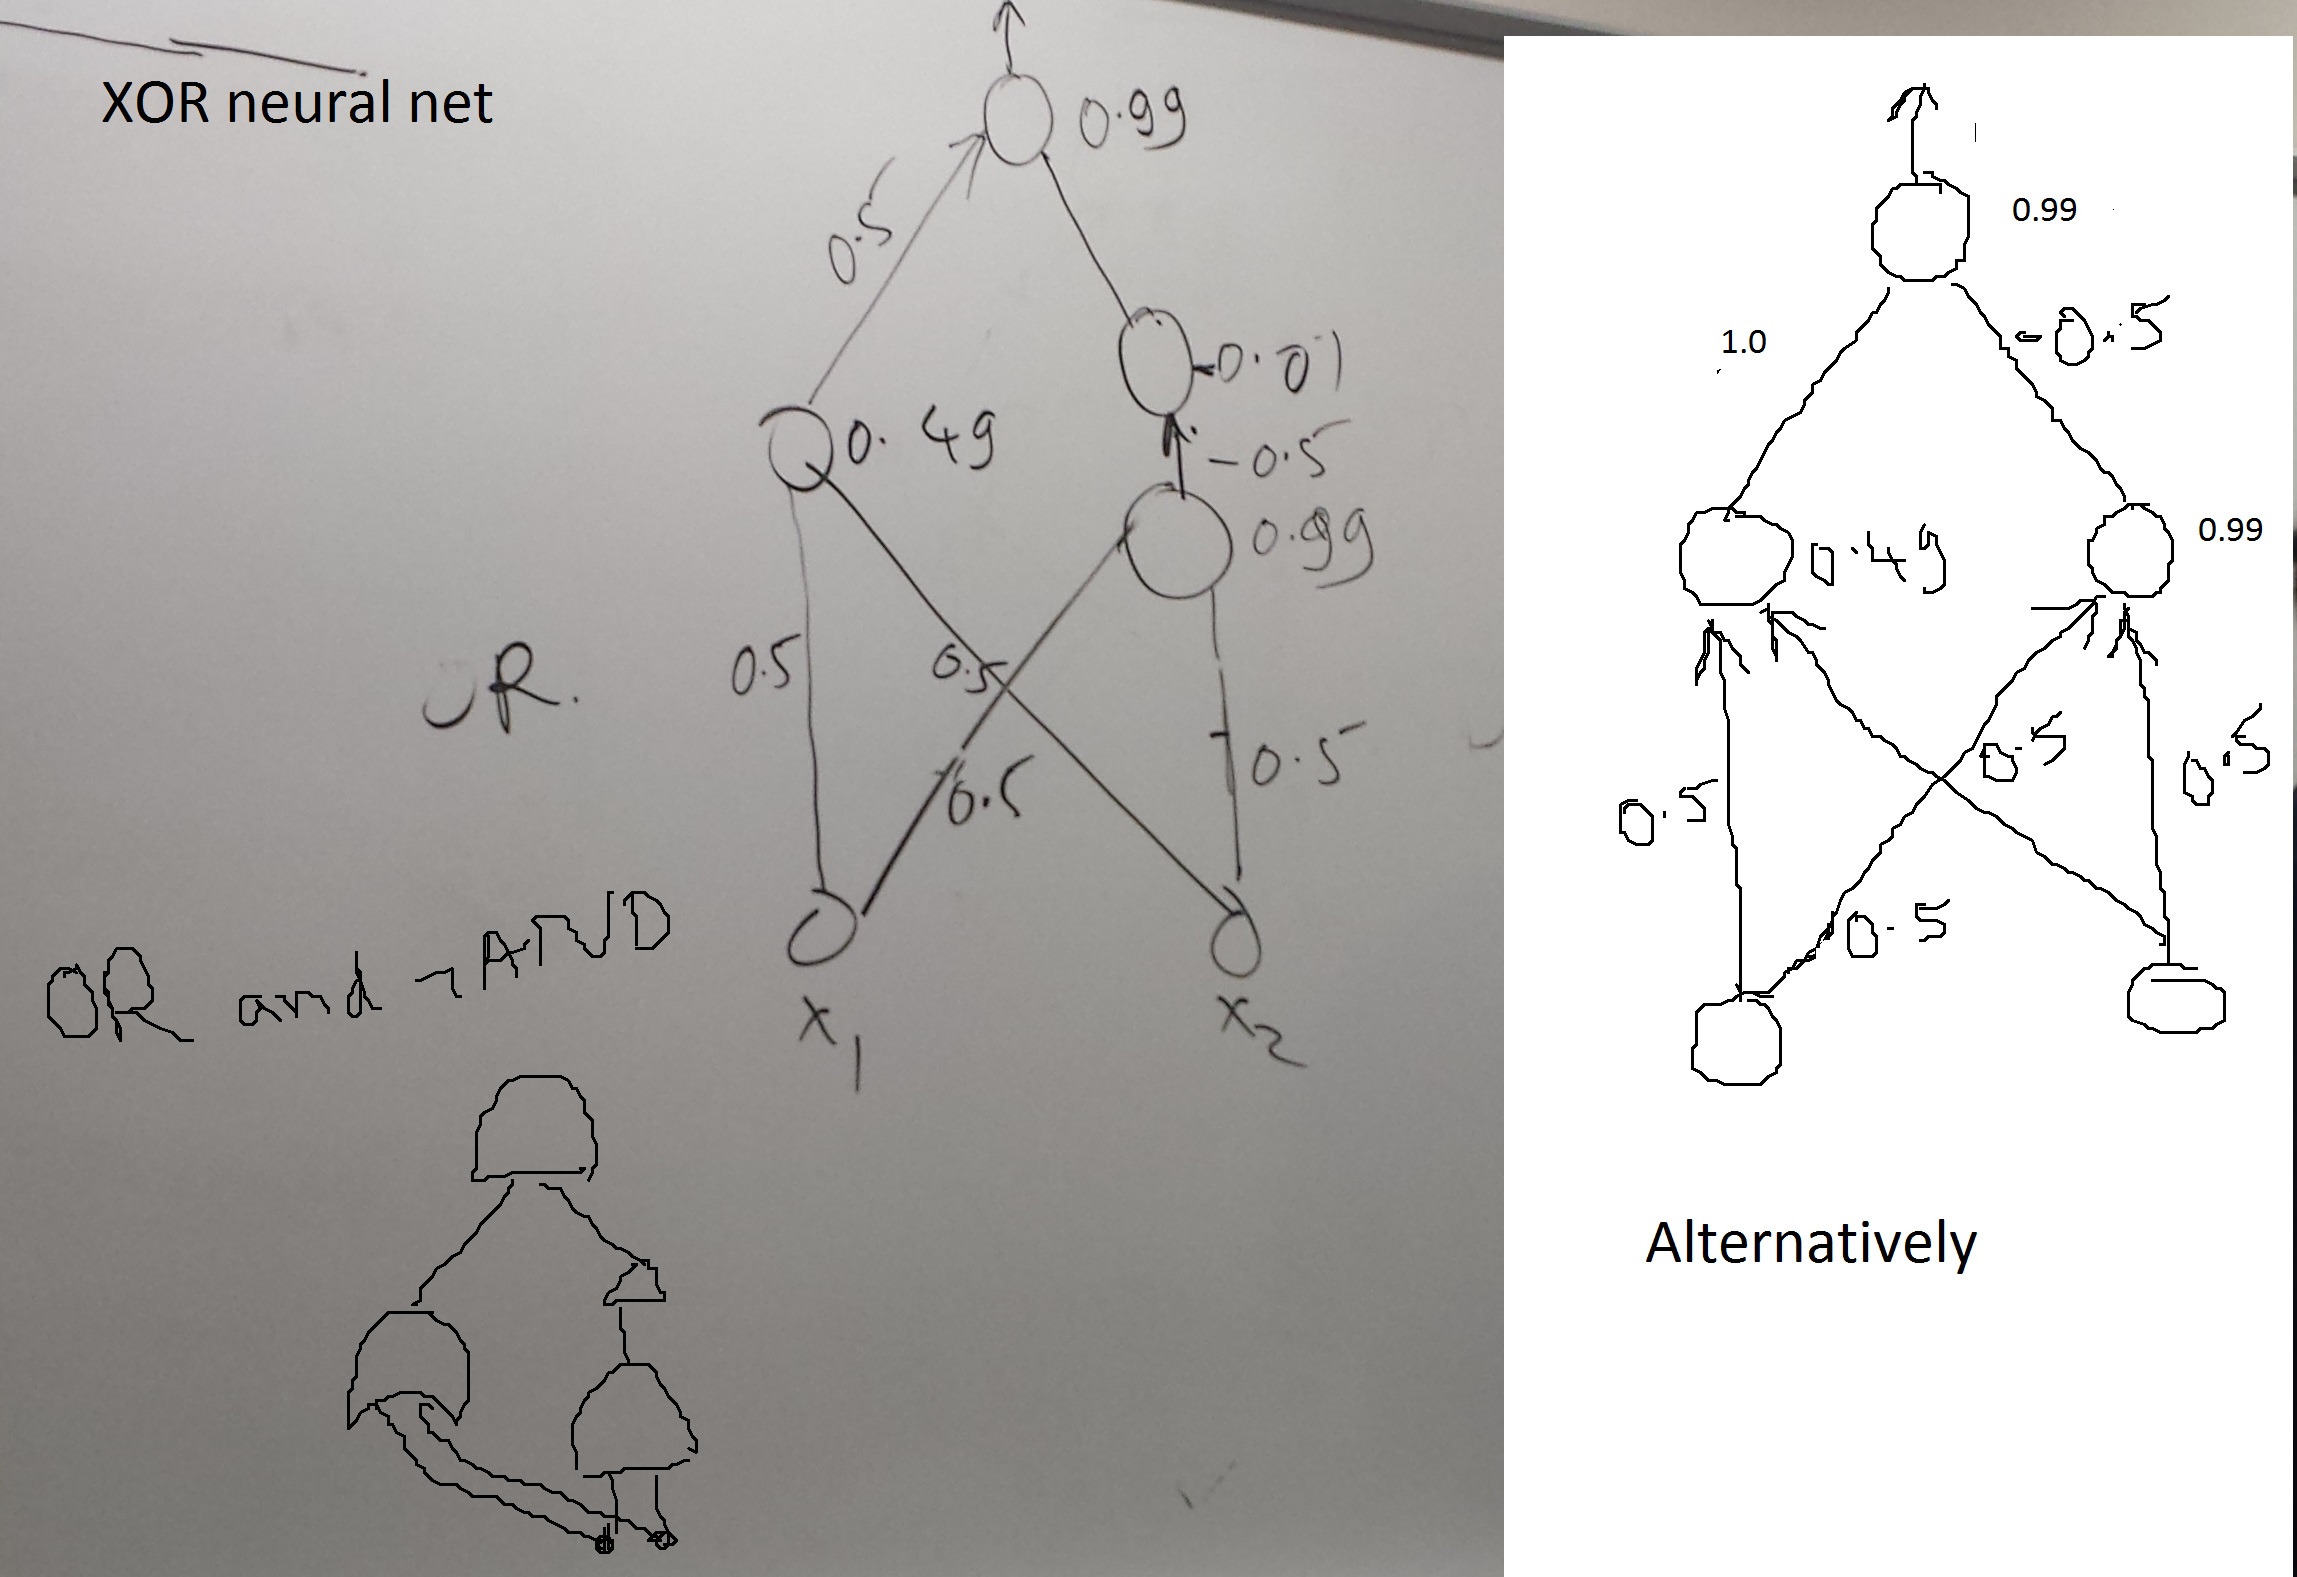 XOR neural net
0.99
0.5
-0.01
0.49
-0.5
0.99
0.5
0.5
0.5
0.5
x1
x2
OR and ¬AND
0.99
1.0
-0.5
0.49
0.99
0.5
0.5
0.5
0.5
Alternatively